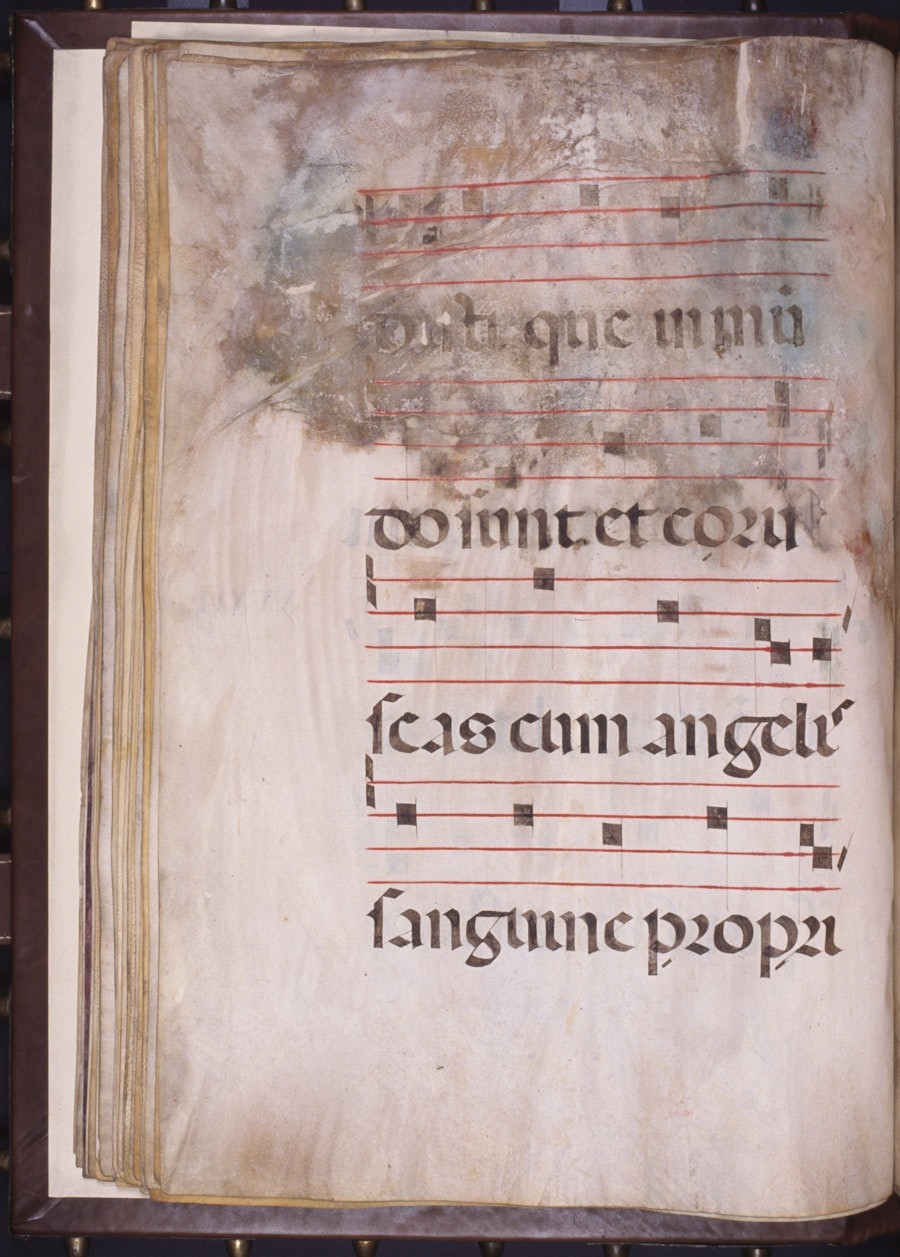 que in mū
do sunt et coru
scas cum angelis
sanguine propri